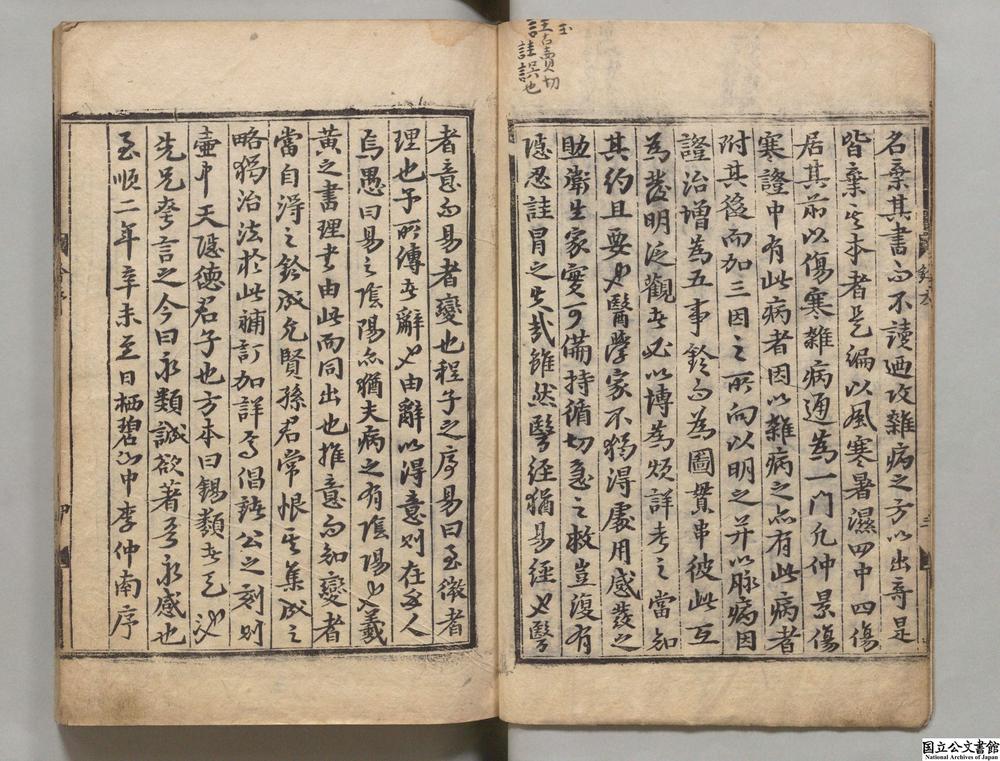 玉
王古賣切
言詿誤也
名棄其書而不讀迺攻雜病之方以出奇是
皆棄其本者是編以風寒暑濕四中四傷
居其前以傷寒雜病通為一門凡仲景傷
寒證中有此病者因以雜病之亦有此病者
附其後而加三因之所向以明之并以脉病因
證治增為五事鈐而為圖貫串彼此互
為發明泛觀者必以博為煩詳考之當知
其約且要也醫學家不獨得處用感發之
助衛生家實可備持循切急之救豈復有
隱忍詿冒之失哉雖然醫經猶易經也醫
者意而易者變也程子之序易曰至微者
理也予所傳者辭也由辭以得意則在乎人
焉愚曰易之陰陽亦猶夫病之有陰陽也羲
黄之書理未由此而同出也推意而知變者
當自得之鈐成允賢孫君常恨其集成之
略獨治法於此補訂加詳焉倡諸公之刻則
壺中天隱德君子也方本曰錫類者乞以
先兄夸言之今曰永類誠欲著吾永感也
至順二年辛未至日栖碧山中李仲南序
国立公文書館
National Archives of Japan